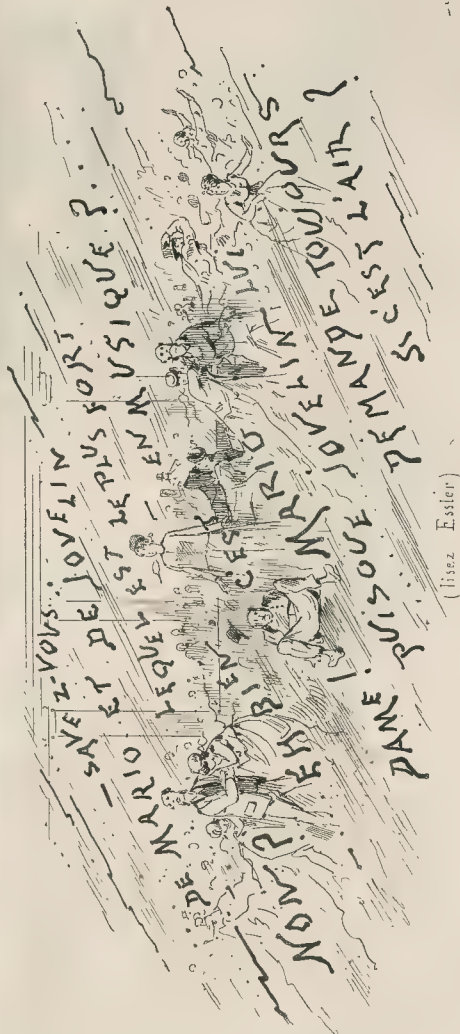 — SAVEZ-VOUS..
DE MARIO ET DE JOVELIN
LEQUEL EST LE PLUS FORT
— EN MUSIQUE ?..
NON ? EH BIEN ! C'EST MARIO LUI
DAME ! PUISQUE MARIO JOVELIN
... DEMANDE TOUJOURS
SI C'EST L'AIR ?
(lisez Essler)